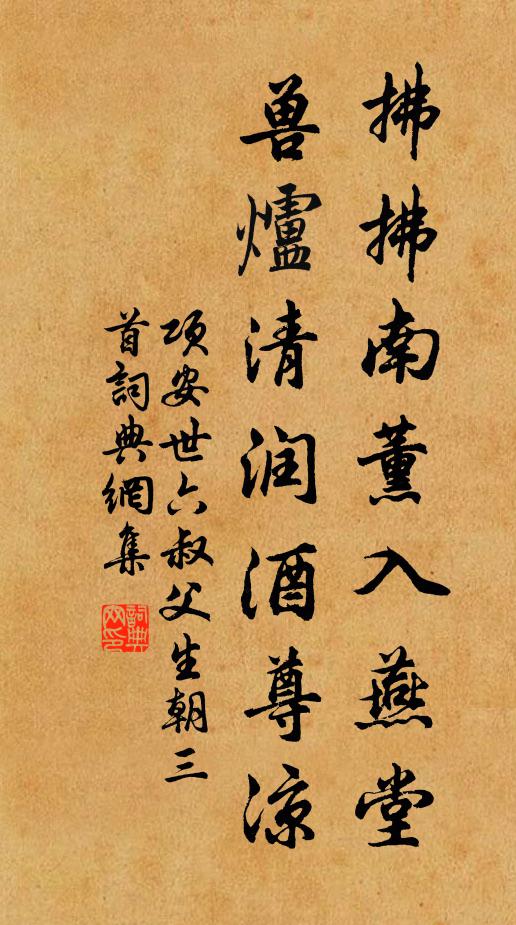 拂拂南薰入燕堂
兽爐清润酒尊凉
项安世六叔父生朝三
首詞典網集
詞典網印